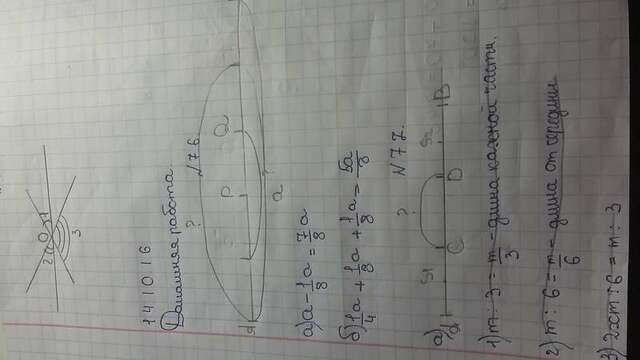 2 O 1
3
141016
Домашняя работа.
? №76
d P Q
a
а) a - 1/8 a = 7/8 a
б) 1/4 a + 1/8 a + 1/8 a = 5a/8
№77.
?
а) d S1 C D S2 B
1) m : 3 = m/3 - длина каждой части.
2) m : 6 = m/6 - длина от середины
3) 2×m : 6 = m : 3